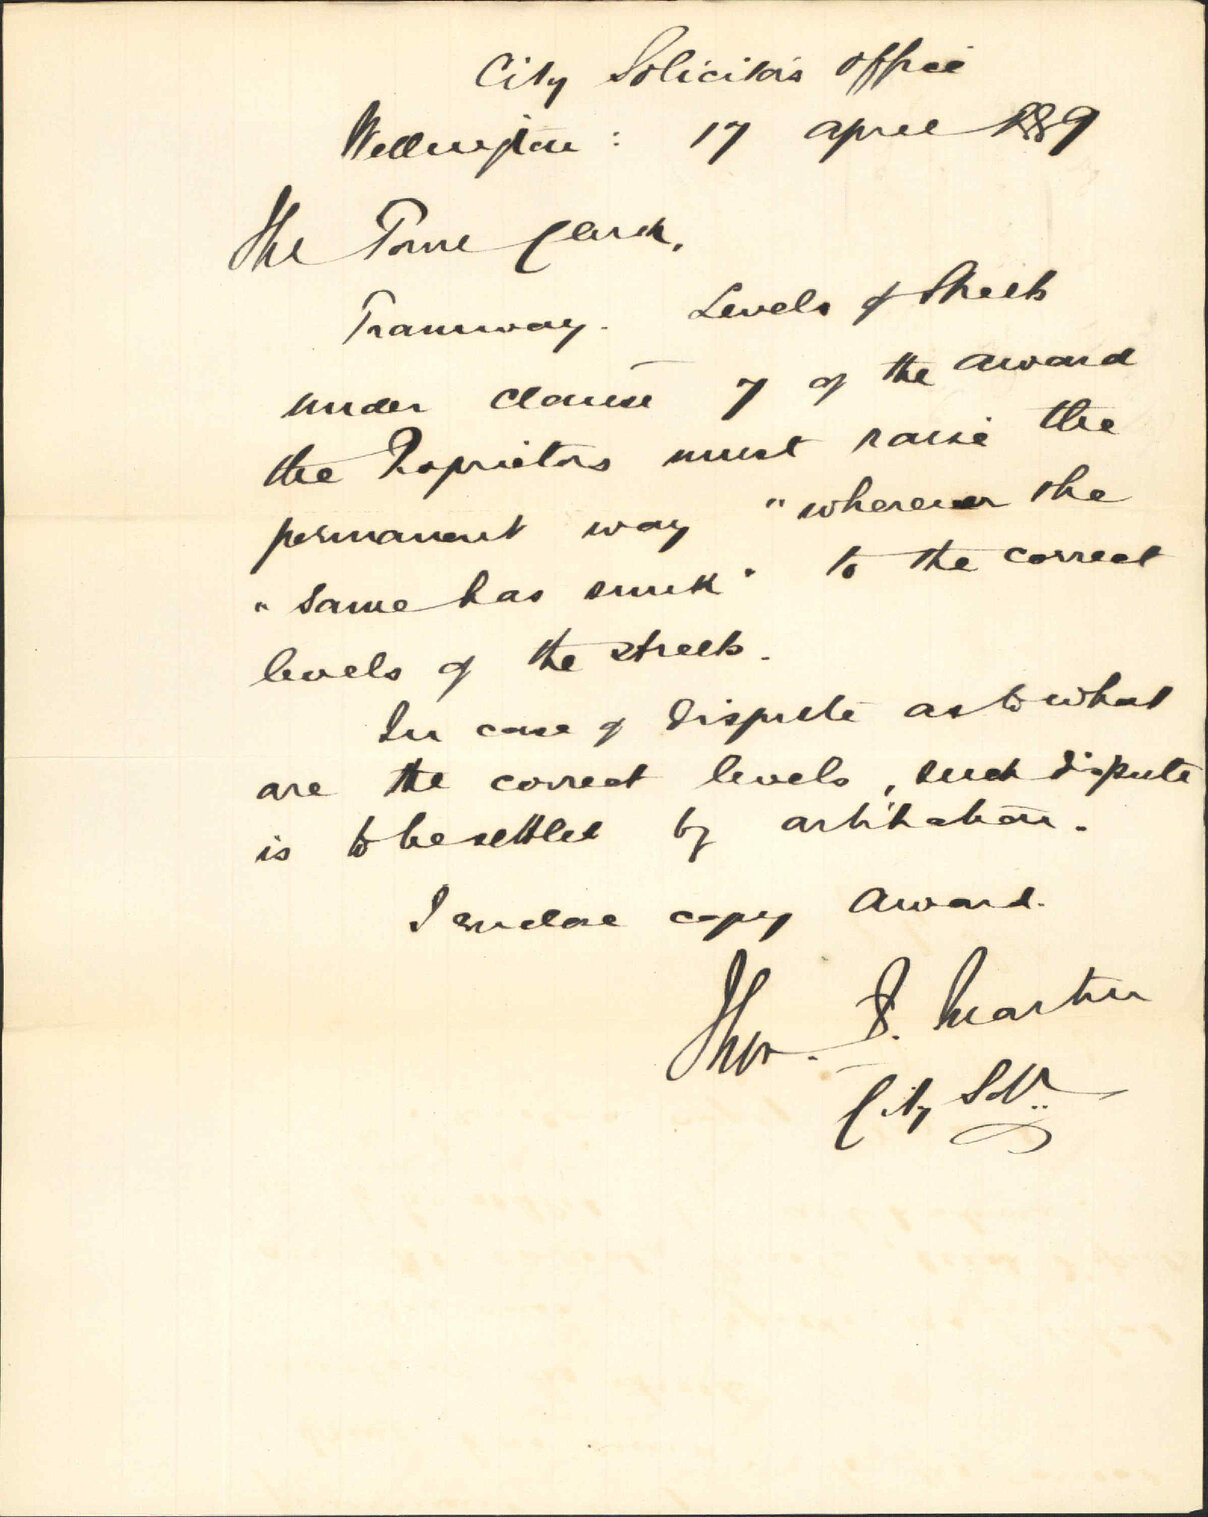 City Solicitor's Office
Wellington: 17 April 1889
The Town Clerk,
Tramway. Levels of Streets
under clause 7 of the Award
the Proprietors must raise the
permanent way "wherever the
"same has sunk" to the correct
levels of the streets.
In case of dispute as to what
are the correct levels, such dispute
is to be settled by arbitration.
I enclose copy Award.
Thos. F. Martin
City Solr.